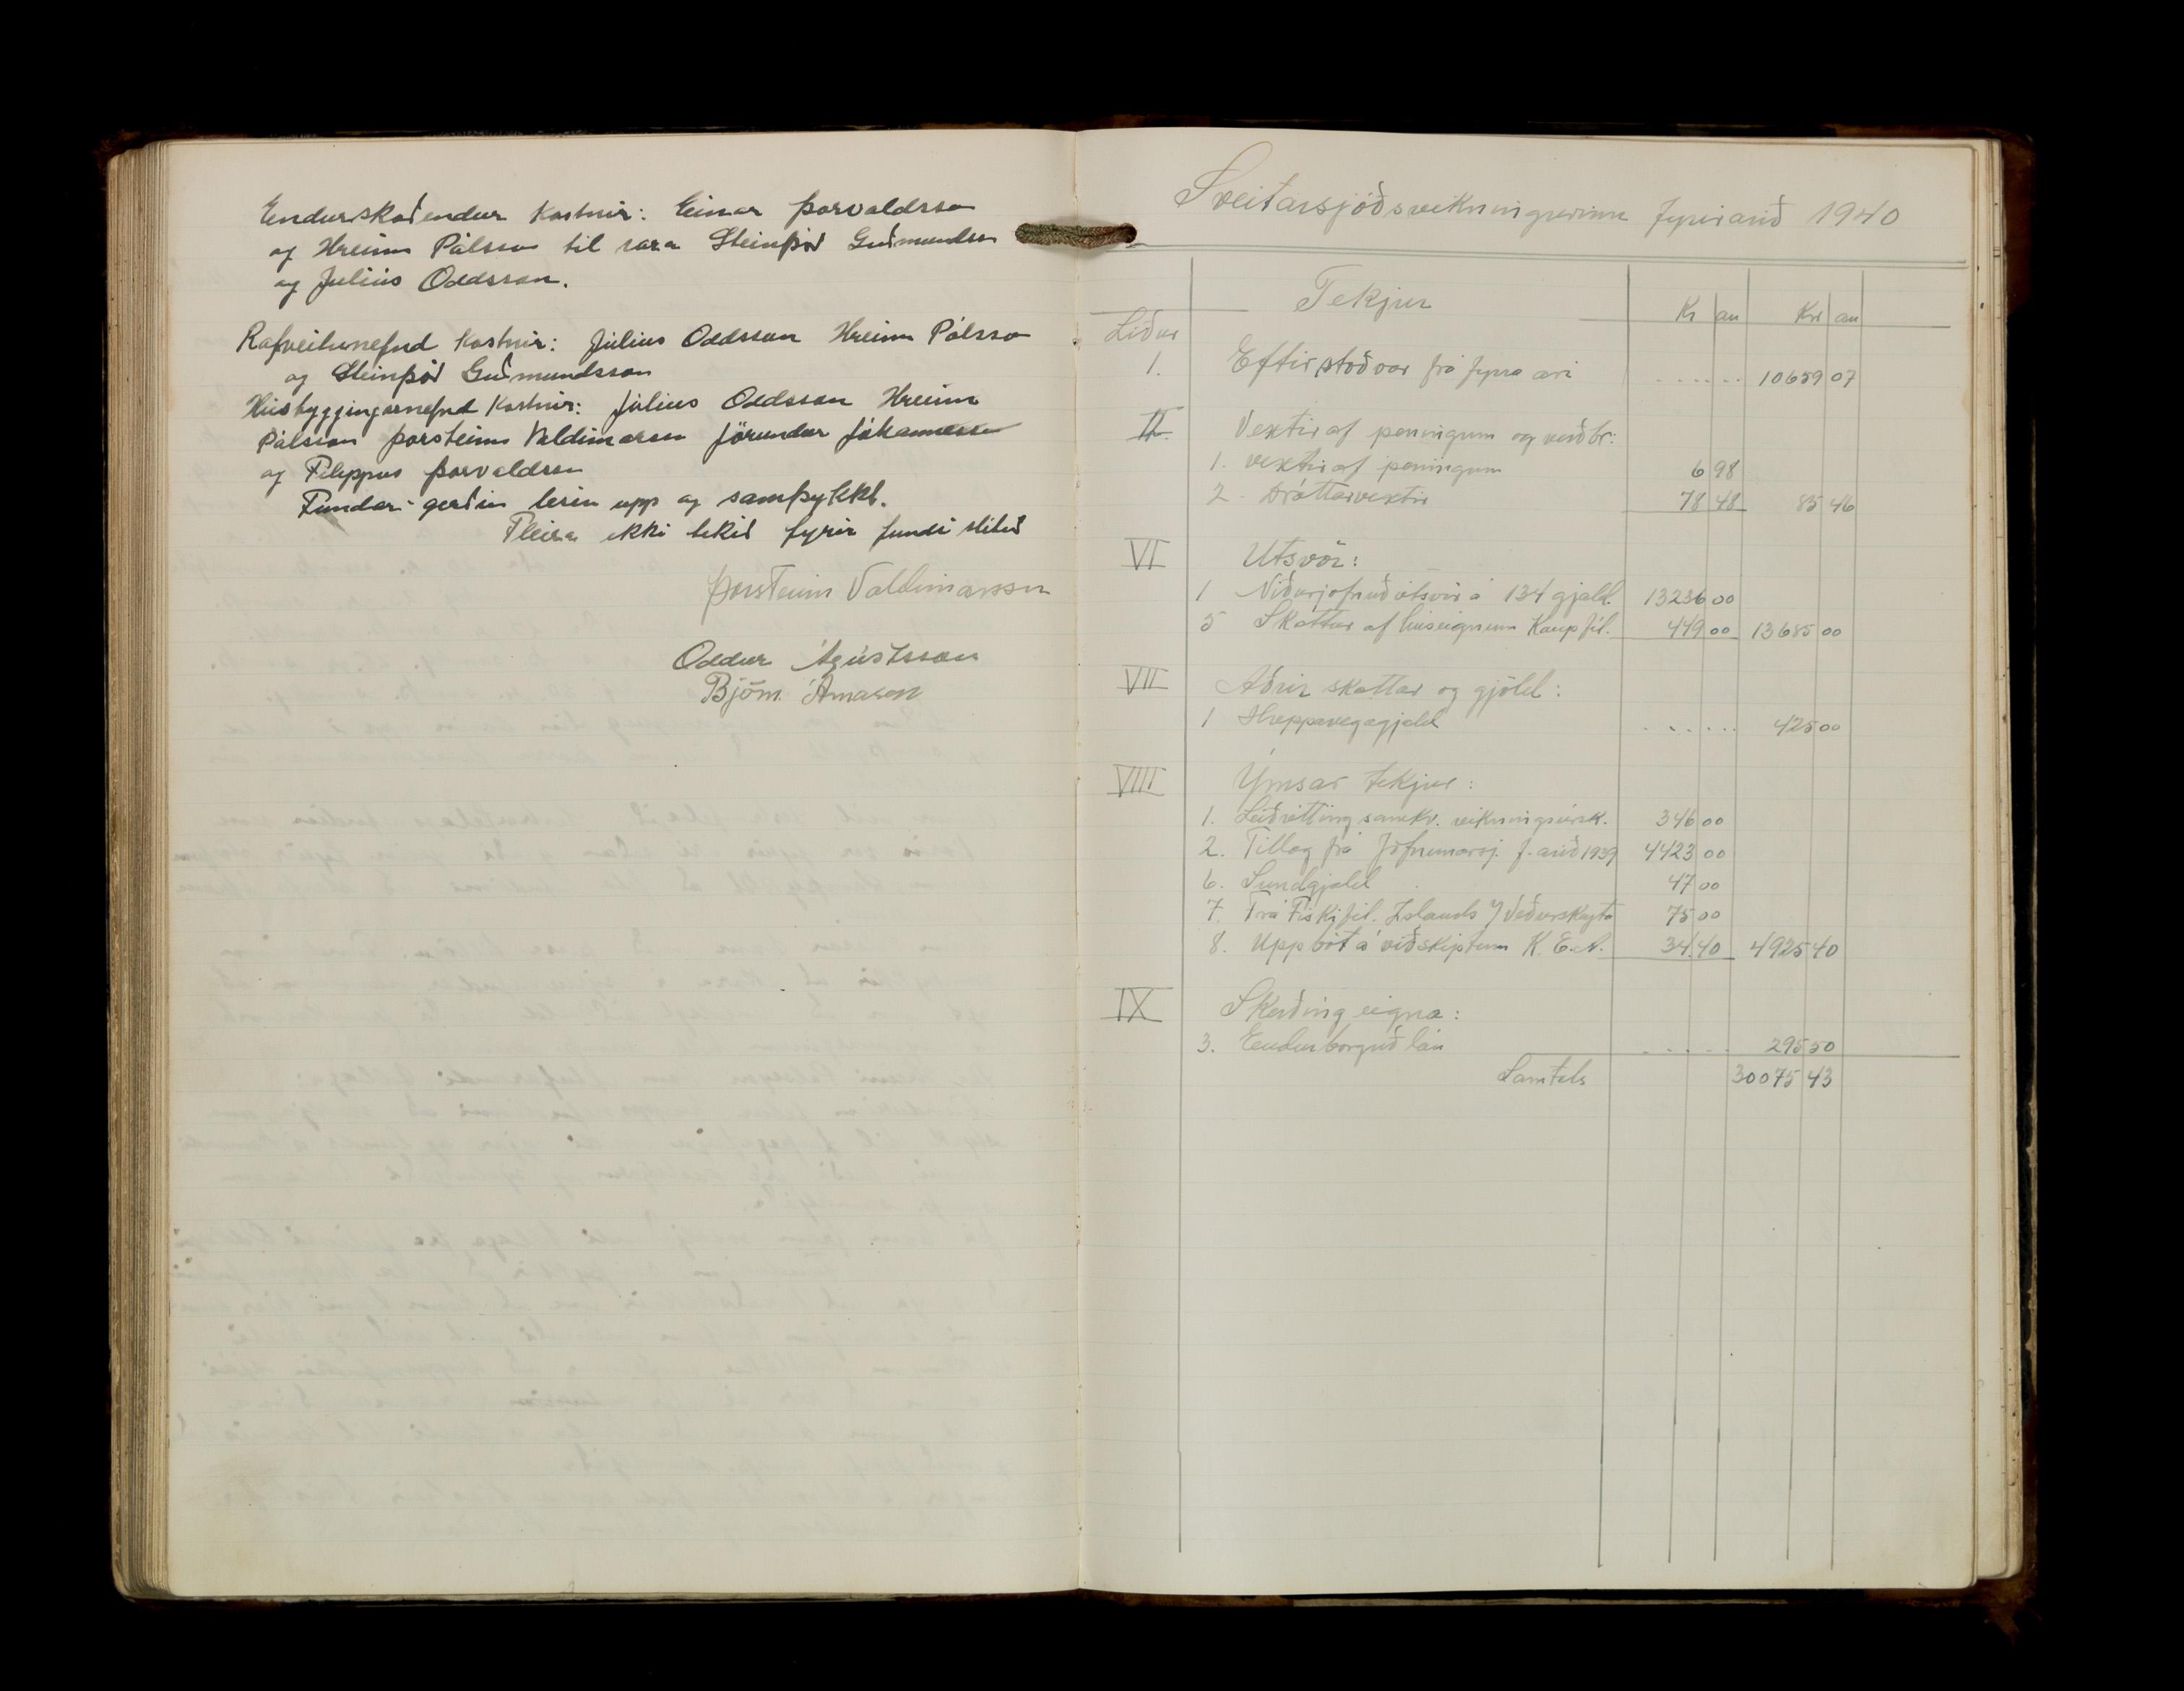 Endurskodendur Kostnir: Einar Þorvaldsso
og Hreinn Pálsson til vara Steinþór Guðmundss
og Julíus Oddsson.
Rafveitunefnd Kostnir: Júlíus Oddsson Hreinn Pálsso
og Steinþór Guðmundsson
Húsbyggingarnefnd Kostnir: Júlíus Oddsson Hreinn
Pálsson Þorsteinn Valdimarsson Jörundur Jóhannesso
og Filippus Þorvaldsson
Fundar-gerðin lesin upp og samþykkt.
Fleira ekki tekið fyrir fundi slitið
Þorsteinn Valdimarsson
Oddur Ágústsson
Björn Árnason
Sveitarsjóðsreikningurinn fyrir árið 1940
Tekjur Kr au Kr au
Liður
1. Eftirstöðvar frá fyrra ári ...... 10659 07
II. Vextir af peningum og verðbr:
1. vextir af peningum 6 98
2. Dráttarvextir 78 48 85 46
VI Utsvör:
1 Niðurjöfnuð útsvör á 134 gjald. 13236 00
5 Skattur af húseignum Kaupfél. 449 00 13685 00
VII Aðrir skattar og gjöld:
1 Hreppavegagjald ...... 425 00
VIII Ýmsar tekjur:
1. Leiðrétting samkv. reikningsúrsk. 346 00
2. Tillag frá Jöfnunarsj. f. árið 1939 4423 00
6. Sundgjald 47 00
7. Frá Fiskifél. Islands f/ Veðurskeyta 75 00
8. Uppbót á viðskiptum K. E. A. 34.40 4925 40
IX Skerðing eigna:
3. Eendurborguð lán ..... 295 50
Samtals 30075 43